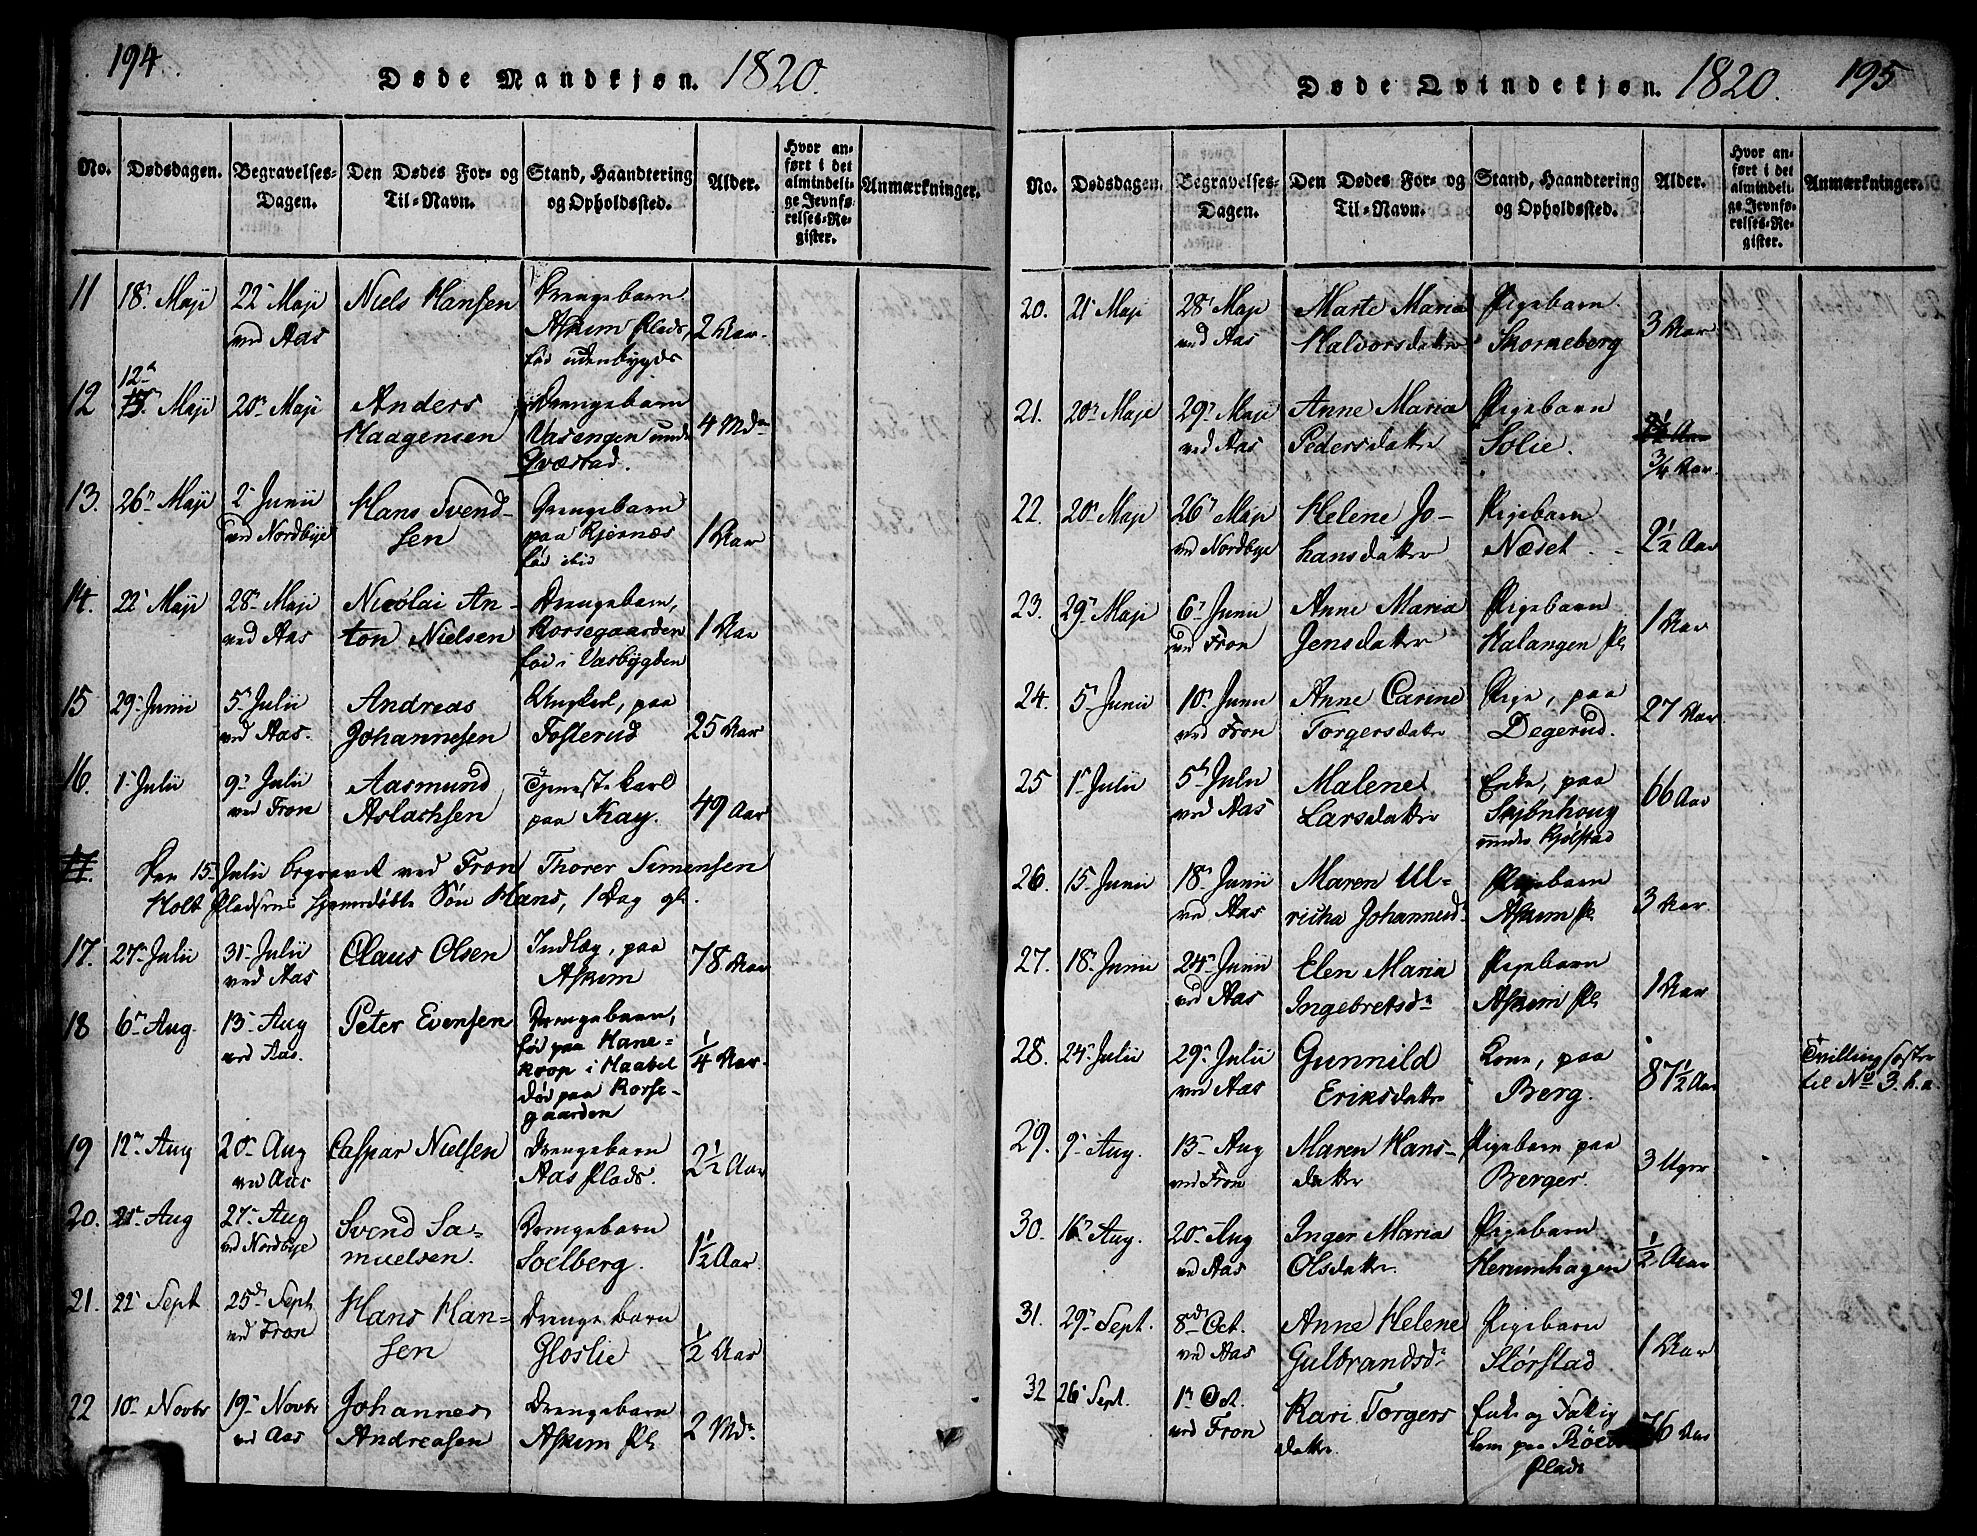 194.
Døde Mandkjøn. 1820.
No. Dødsdagen. Begravelses-Dagen. Den Dødes For- og Til-Navn. Stand, Haandtering og Opholdssted. Alder. Hvor anført i det almindelige Jevnførelses-Register. Anmærkninger.
11 18 Maji 22 Maji Niels Hansen Drengebarn
ved Aas Askim Plads, 2 Aar.
fød udenbygds
12 12 Maji 20 Maji Anders Drengebarn
Haagensen Vasengen under 4 Md
Qvæstad.
13. 26 Maji 2 Junii Hans Svend- Drengebarn
ved Nordbye sen paa Kjernæs 1 Aar
fød ibid
14. 22 Maji 28 Maji Nicolai An- Drengebarn,
ved Aas ton Nielsen Korsegaarden 1 Aar
fød i Aasbygden
15 29 Junii 5 Julii Andreas Ungkarl, paa
ved Aas. Johannesen Fosterud 25 Aar
16. 1 Julii 9 Julii Aasmund Tjenestekarl
ved Fron Aslachsen paa Kay. 49 Aar
17. Den 15 Julii begravet ved Fron Thorer Simensen
Holt Pladsens hjemedøbte Søn Hans, 1 Dag gl.
17. 27 Julii 31 Julii Claus Olsen Indlæg, paa
ved Aas Askim 78 Aar
18 6 Aug. 13 Aug Peter Evensen Drengebarn,
ved Aas. fød paa Hane-
koop i Haabel 1/4 Aar.
død paa Korse-
gaarden
19 12 Aug 20 Aug Caspar Nielsen Drengebarn
ved Aas Aas Plads. 2 1/2 Aar
20. 21 Aug 27 Aug Svend Sa- Drengebarn
ved Nordbye muelsen. Soelberg. 1 1/2 Aar
21. 22 Sept 25 Sept. Hans Han- Drengebarn
ved Fron sen Gloslie 1/2 Aar
22 10 Novbr 19 Novbr Johannes Drengebarn
ved Aas Andreasen Askim Pl 2 Md
195
Døde Qvindekjøn. 1820.
No. Dødsdagen. Begravelses-Dagen. Den Dødes For- og Til-Navn. Stand, Haandtering og Opholdssted. Alder. Hvor anført i det almindelige Jevnførelses-Register. Anmærkninger.
20. 21 Maji 28 Maji Marte Maria Pigebarn
ved Aas Halvorsdatter Skorneberg 3 Aar
21. 20 Maji 29 Maji Anne Maria Pigebarn
ved Aas Pedersdatter Solie. 3/4 Aar.
22. 20 Maji 26 Maji Helene Jo- Pigebarn
ved Nordbye hansdatter Næset 2 1/2 Aar
23. 29 Maji 6 Junii Anne Maria Pigebarn
ved Fron Jensdatter Halangen Pl 1 Aar
24. 5 Junii 10 Junii Anne Carine Pige, paa
ved Fron Torgersdatter Degerud. 27 Aar
25 1 Julii 5 Julii Malene Enke, paa
ved Aas Larsdatter Skjønhoug 66 Aar
under Kjølstad
26. 15 Junii 18 Junii Maren Ul- Pigebarn
ved Aas richa Johannesd Askim Pl 3 Aar
27. 18 Junii 24 Junii Elen Maria Pigebarn
ved Aas Ingebretsd Askim Pl 1 Aar
28. 24 Julii 29 Julii Gunnild Kone, paa Tvillingsøster
ved Aas Eriksdatter Berg. 87 1/2 Aar til No 3. h.a.
29. 9 Aug. 13 Aug Maren Hans- Pigebarn paa
ved Fron datter Berger 3 Uger
30. 16 Aug. 20 Aug Inger Maria Pigebarn
ved Aas Olsdatter Herumhagen 1/2 Aar
31. 29 Sept. 8 Oct. Anne Helene Pigebarn
ved Aas Gulbrandsd Størstad 1 Aar
32 26 Sept. 1 Oct. Kari Torgers Enke og Fattig
ved Fron datter lem paa 76 Aar
Plads